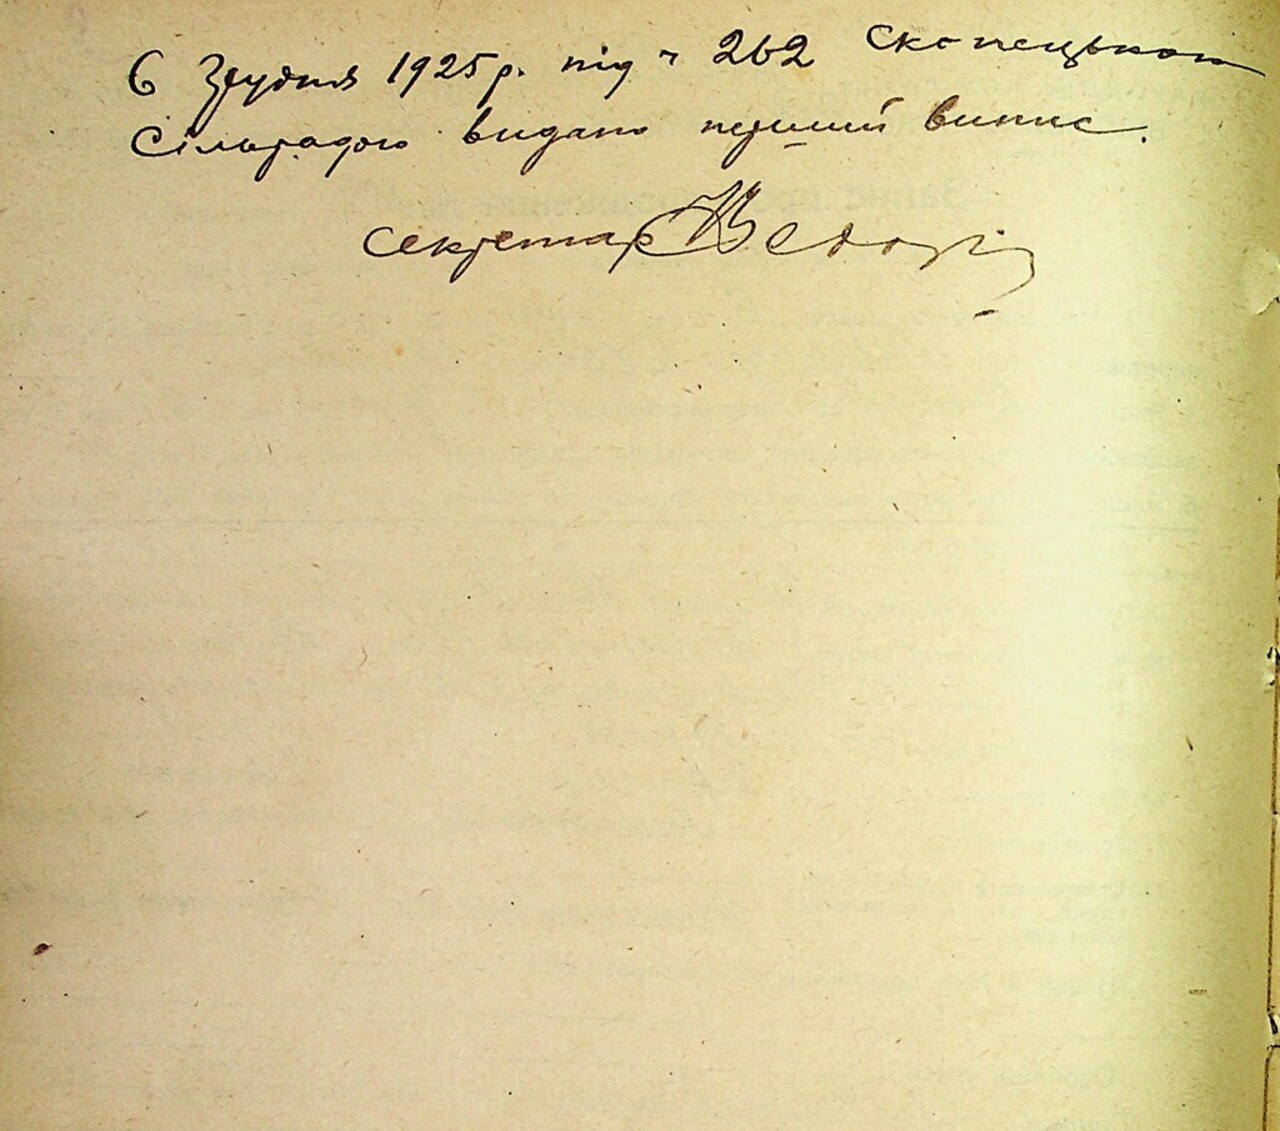 6 Грудня 1925 р. під ч 262 Скопецькою
Сільрадою видано перший випис.
Секретар